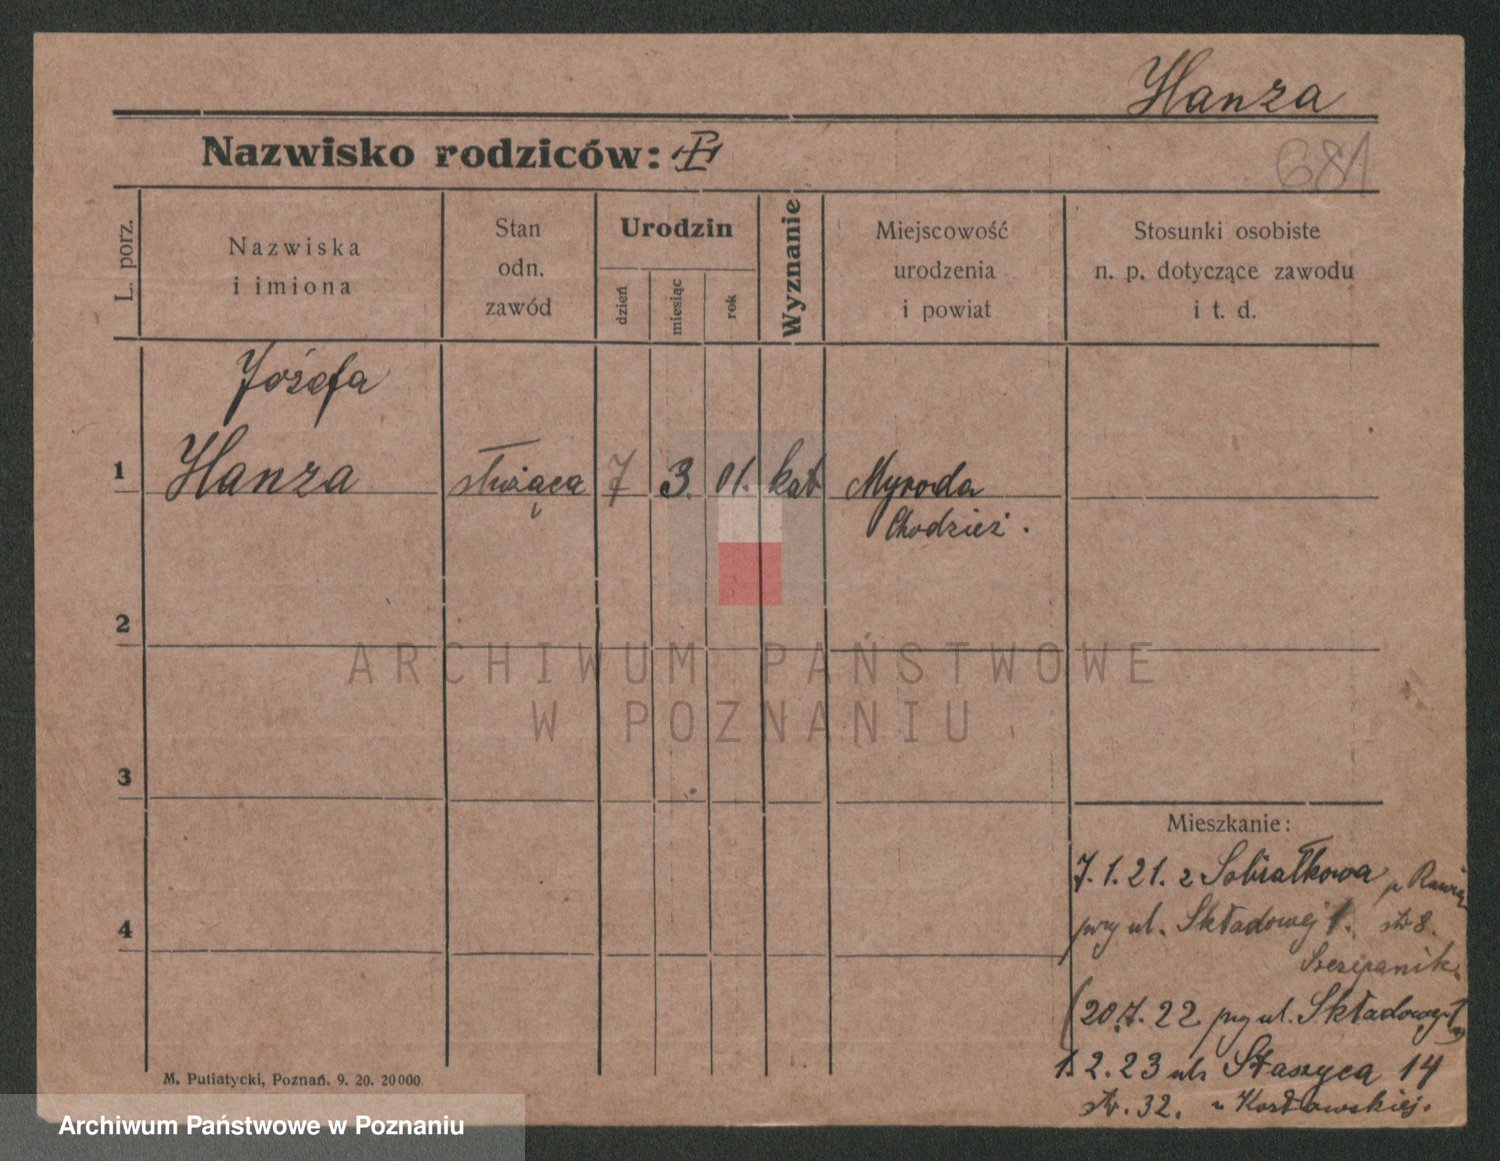 Hanza
Nazwisko rodziców:
681
L. porz.
Nazwiska
i imiona
Stan
odn.
zawód
Urodzin
dzień
miesiąc
rok
Wyznanie
Miejscowość
urodzenia
i powiat
Stosunki osobiste
n. p. dotyczące zawodu
i t. d.
Józefa
1
Hanza
służąca
7
3.
01.
kat
Myroda
Chodzież.
2
3
4
ARCHIWUM PAŃSTWOWE
W POZNANIU
Mieszkanie:
7.1.21. z Sobiałkowa p Rawicz
przy ul. Składowej 1. str 8.
Szczepanik.
(20.7.22 przy ul. Składowej
1.2.23 ul. Staszyca 14
str. 32. u Kosłowskiej.
M. Putiatycki, Poznań. 9. 20. 20000
Archiwum Państwowe w Poznaniu